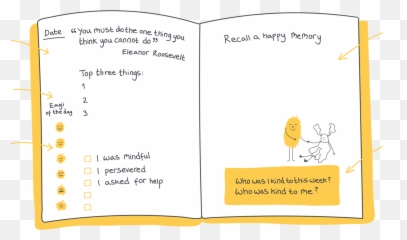 Date
"You must do the one thing you
think you cannot do"
Eleanor Roosevelt
Top three things:
1
2
3
Emoji
of the day
I was mindful
I persevered
I asked for help
Recall a happy memory
Who was I kind to this week?
Who was kind to me?